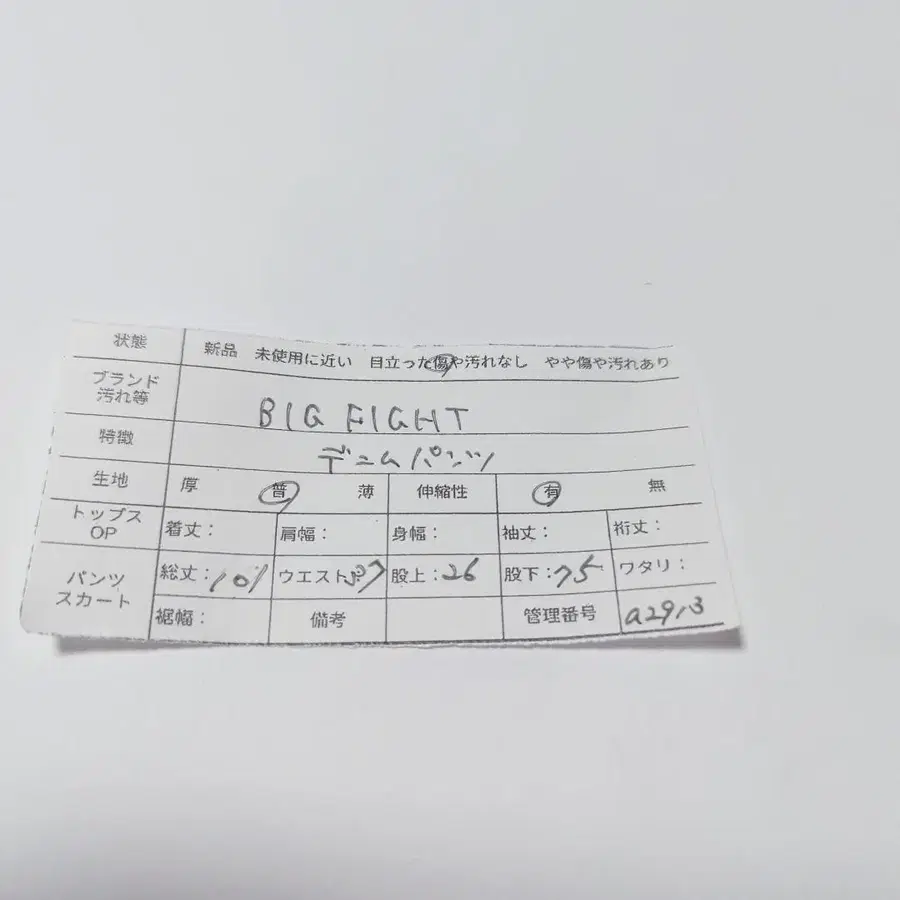 状態 新品 未使用に近い 目立った傷や汚れなし やや傷や汚れあり
ブランド
汚れ等
BIG FIGHT
特徴 デニムパンツ
生地 厚 普 薄 伸縮性 有 無
トップス
OP
着丈: 肩幅: 身幅: 袖丈: 裄丈:
パンツ
スカート
総丈:101 ウエスト: 股上:26 股下:75 ワタリ:
裾幅: 備考 管理番号 a2913